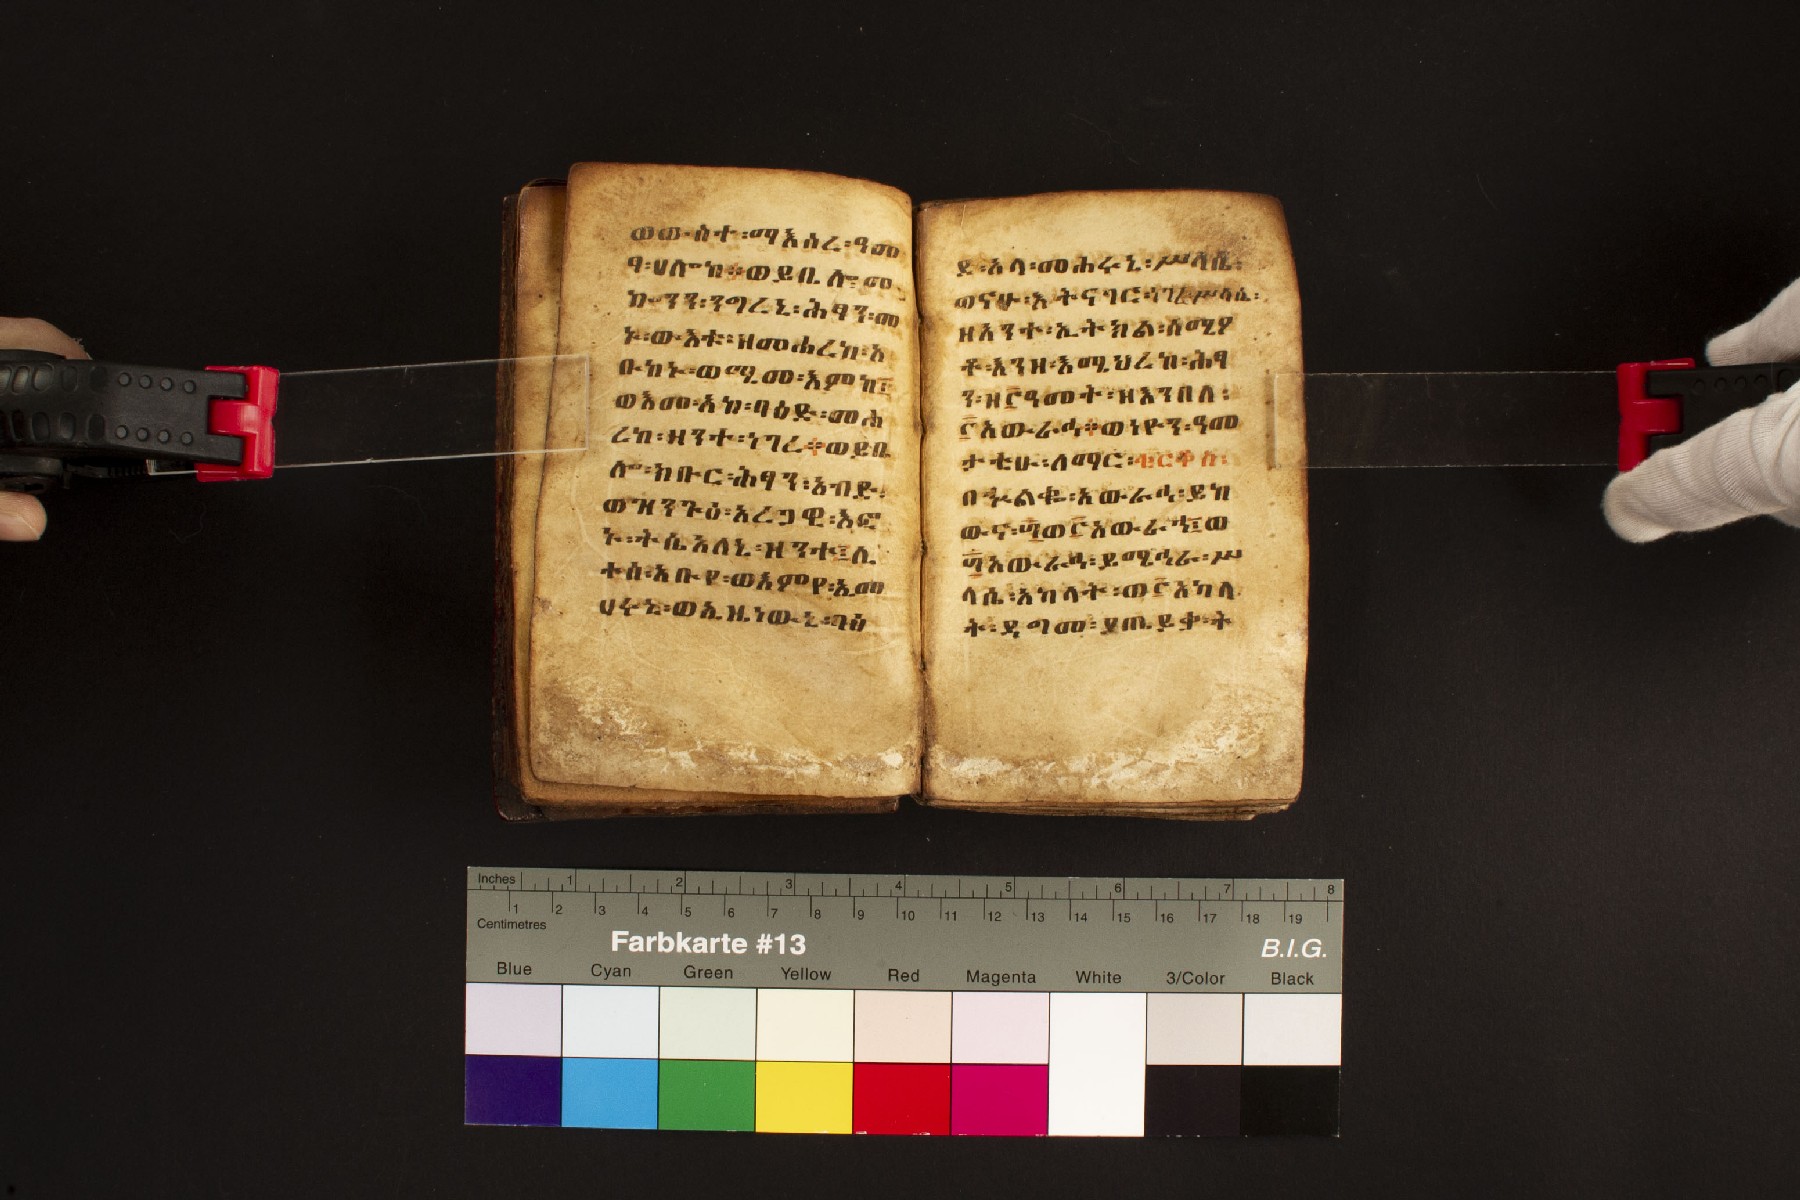 ወውስተ፡ማእሰረ፡ዓመ
ፃ፡ሀሎከ፡ወይቤሎ፡መ
ኰንን፡ንግረኒ፡ሕፃን፡መ
ኑ፡ውእቱ፡ዘመሐረከ፡አ
ቡከኑ፡ወሚመ፡እምከ፤
ወእመ፡አኮ፡ባዕድ፡መሐ
ረከ፡ዘንተ፡ነገረ፡ወይቤ
ሎ፡ክቡር፡ሕፃን፡አብድ፡
ወዝንጉዕ፡አረጋዊ፡እፎ
ኑ፡ትሴአለኒ፡ዘንተ፤ሊ
ተሰ፡አቡየ፡ወእምየ፡ኢመ
ሀሩኒ፡ወኢዜነውኒ፡ባዕ
ደ፡አላ፡መሐሩኒ፡ሥላሴ፡
ወናሁ፡ኢትናገር፡
ዘእንተ፡ኢትክል፡ሰሚዖ
ቶ፡እንዘ፡እሜህረከ፡ሕፃ
ን፡ዘ፫ዓመት፡ዘእንበለ፡
፫አውራኅ፡ወነዋ፡ዓመ
ታቲሁ፡ለማር፡ቂርቆስ፡
በኍልቈ፡አውራኅ፡ይከ
ውና፡፴ወ፫አውራኅ፤ወ
፴አውራኅ፡ይሜህራ፡ሥ
ላሴ፡አካላት፡ወ፫አካላ
ት፡ዳግመ፡ያጤይቃ፡ት
Inches 1 2 3 4 5 6 7 8
1 2 3 4 5 6 7 8 9 10 11 12 13 14 15 16 17 18 19
Centimetres
Farbkarte #13
B.I.G.
Blue Cyan Green Yellow Red Magenta White 3/Color Black